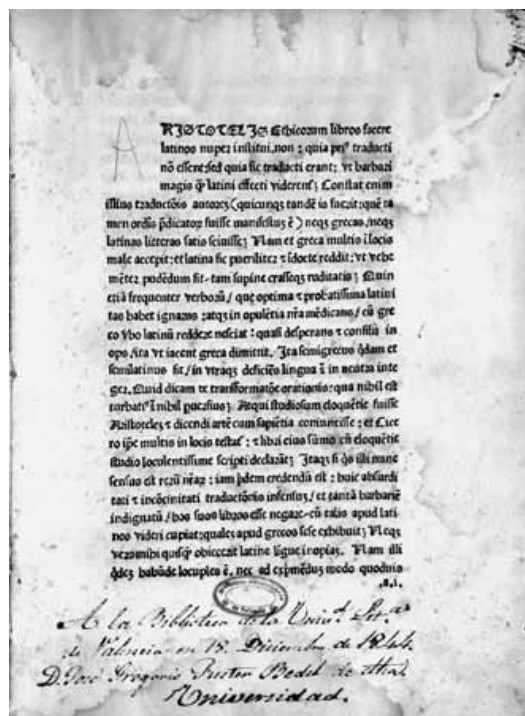 A
ARISTOTELIS Ethicorum libros facere
latinos nuper institui, non : quia priꝰ traducti
nō essent: sed quia sic traducti erant: vt barbari
magis ꝙ̃ latini effecti viderent᷑. Constat enim
illius traductōis autorē (quicunqꝫ tandē is fuerit: quē ta
men ordīs p̄dicatoꝝ fuisse manifestuꝫ ē) neqꝫ grecas/ neqꝫ
latinas litteras satis sciuisse. Nam et greca multis ī locis
male accepit: et latina sic pueriliter ⁊ īdocte reddit: vt vehe
mēter pudēdum sit tam supine crasseqꝫ ruditatis. Quin
etiā frequenter verboꝝ/ que optima ⁊ probatissima latini
tas habet ignarus: atqꝫ in opulētia nr̄a mēdicans/ cū gre
co v̄bo latinū reddere nesciat: quasi desperans ⁊ consilii in
ops /ita vt iacent greca dimittit. Ita semigrecus q̇dam et
semilatinus fit/ in vtraqꝫ deficiēs lingua ī in neutra inte
ger. Quid dicam de transformatōe orationis: qua nihil est
turbatiꝰ ī nihil peruersius. Atqui studiosum eloquētie fuisse
Aristotelē: ⁊ dicendi artē cum sapiētia coniunxisse: et Cice
ro ip̄e multis in locis testat᷑: ⁊ libri eius sūmo cū eloquētie
studio luculentissime scripti declarāt. Itaqꝫ si q̇s illi nunc
sensus est rerū nr̄aꝝ: iam p̄dem credendū est: huic absurdi
tati ⁊ incōcinitati traductōis infensus/ et tantā barbariē
indignatū/ hos suos libros esse negare. cū talis apud lati
nos videri cupiat: qualeꝫ apud grecos sese exhibuit. Neqꝫ
vero mihi quisꝙ̃ obiecerit latine līgue inopiaꝫ. Nam illi
q̇deꝫ habūde locuples ē, nec ad exp̄mēduꝫ modo quoduis
.a.i.
A la Biblioteca de la Univᵈ. Litᵃ.
de Valencia en 18. Diciembre de 1844.
D. José Gregorio Fuster Bedel de dha.
Universidad.